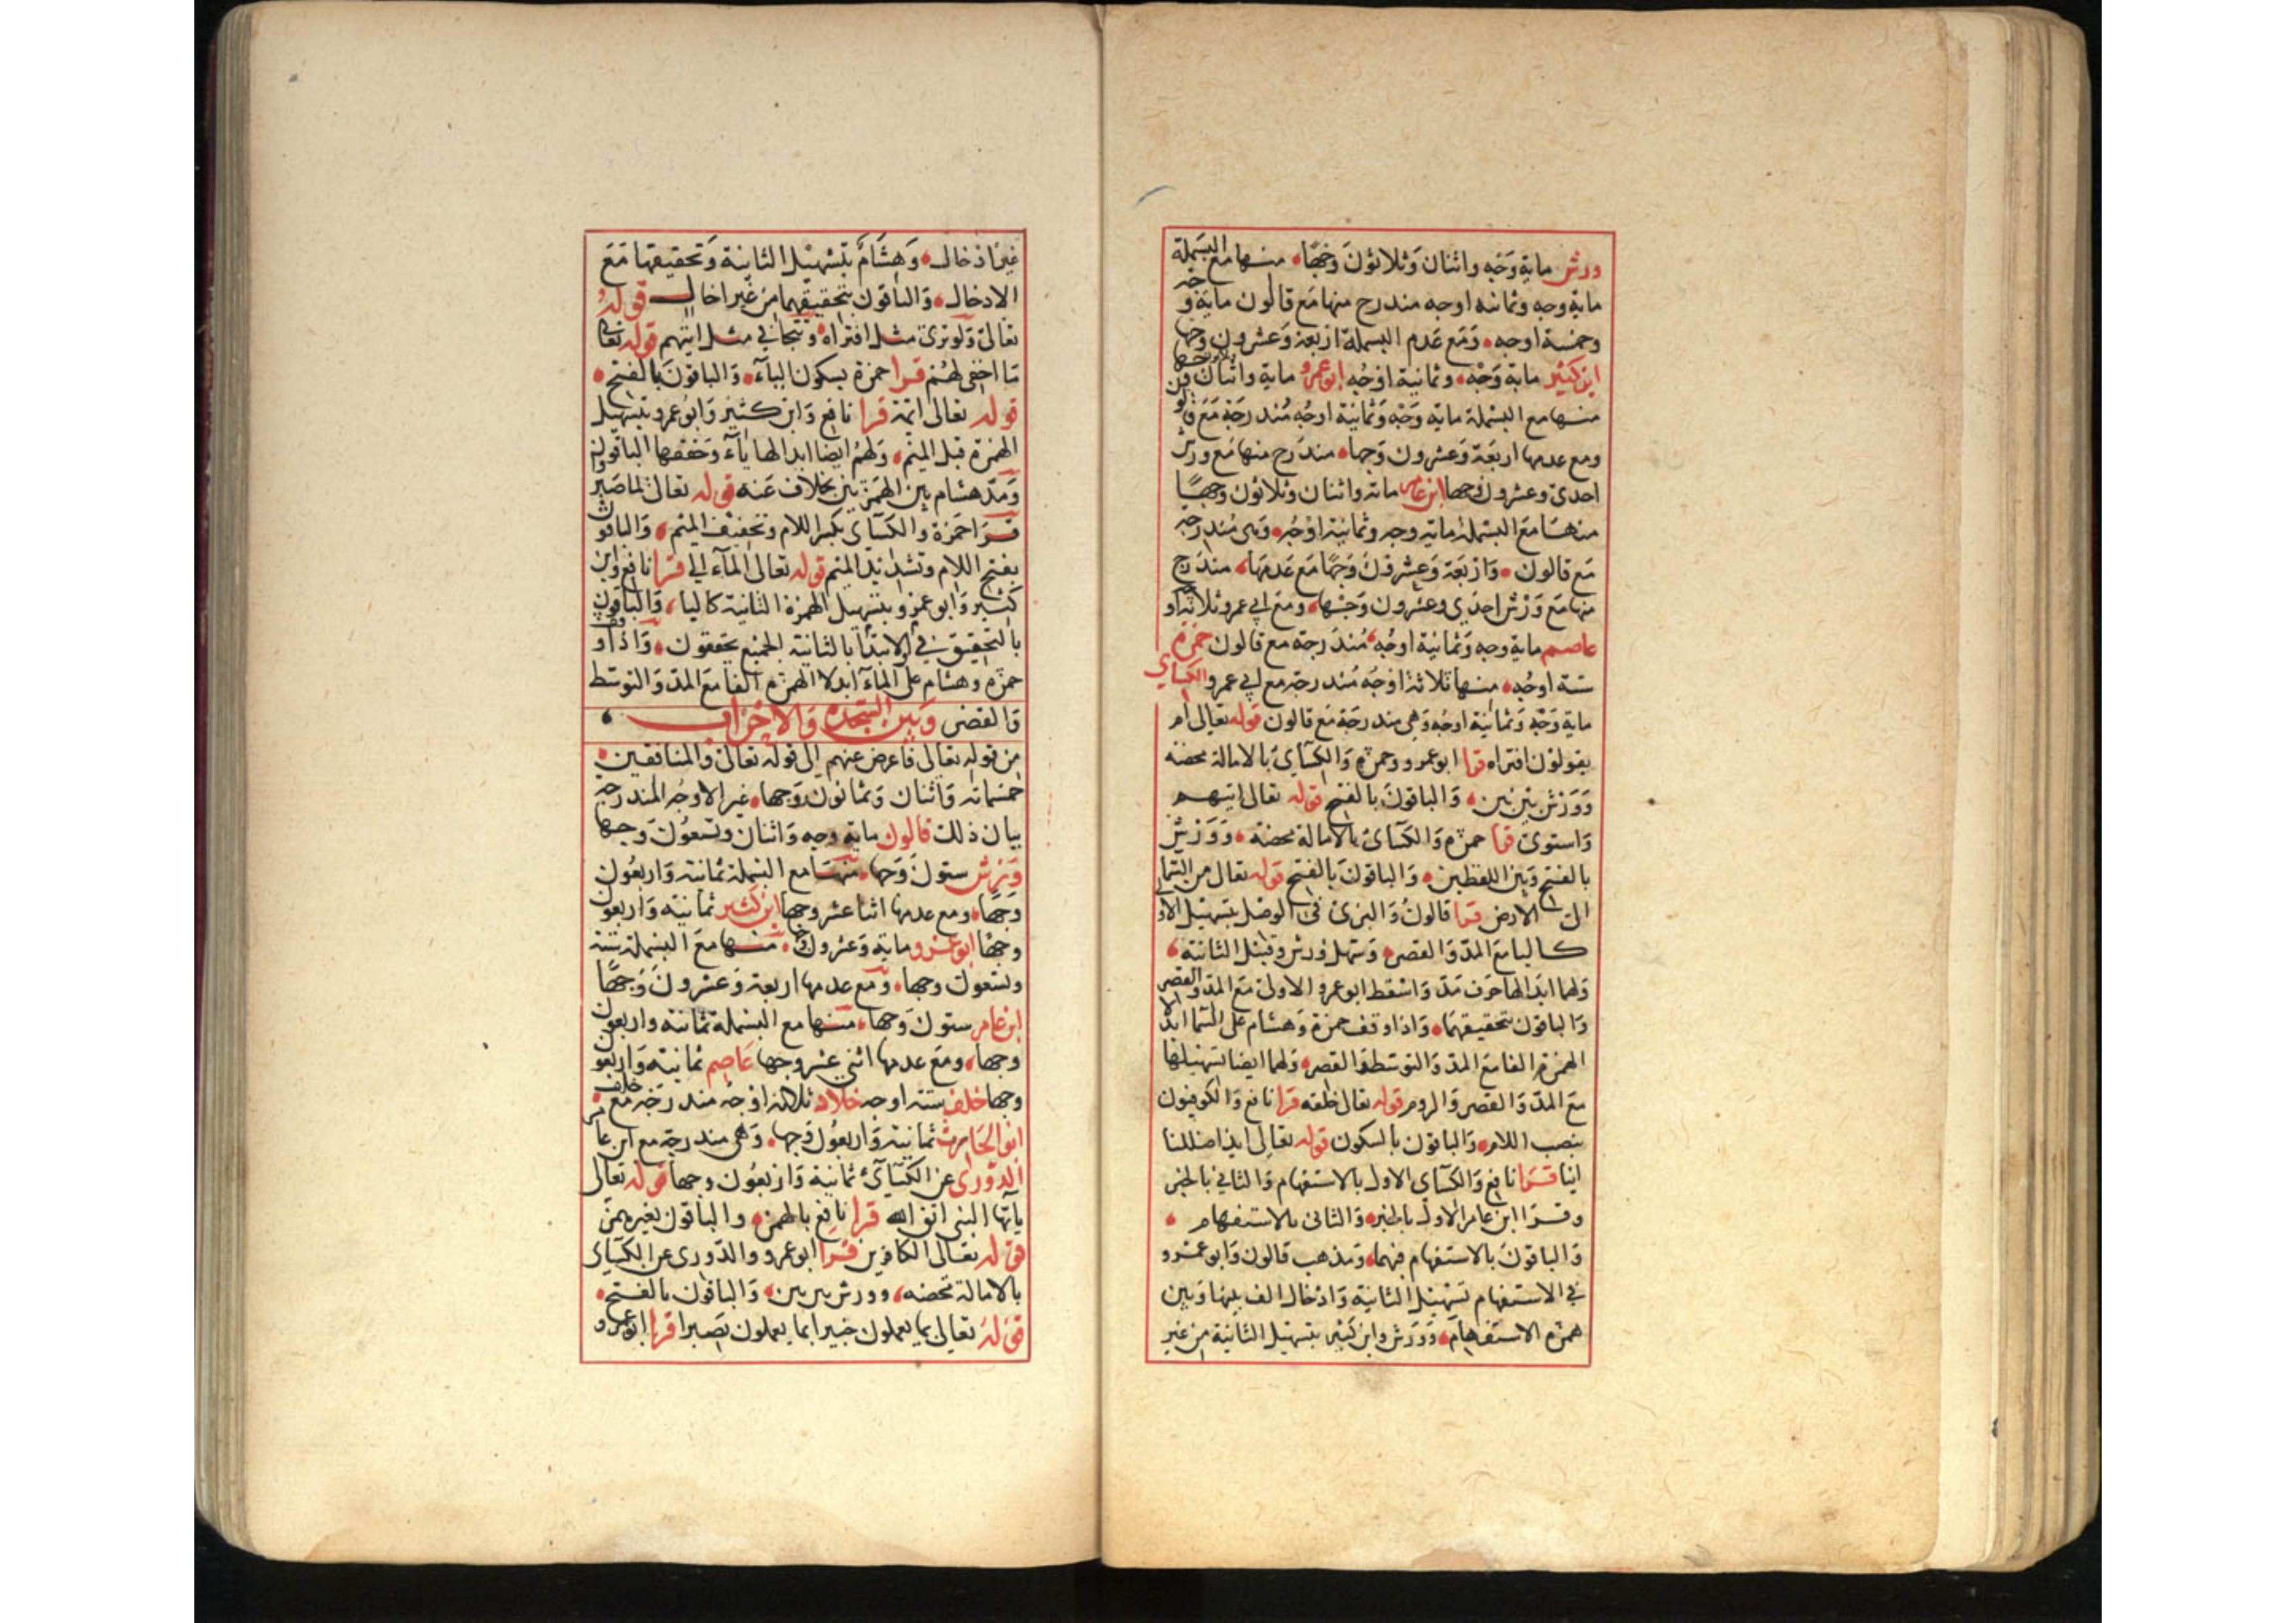 ورش ماية وجه واثنان وثلاثون وجها منها مع البسملة
ماية وجه وثمانية اوجه مندرج منها مع قالون ماية وجه
وخمسة اوجه ومع عدم البسملة اربعة وعشرون وجها
ابن كثير ماية وجه وثمانية اوجه ابو عمرو ماية واثنان وثلاثون وجها
منها مع البسملة ماية وجه وثمانية اوجه مندرجة مع قالون
ومع عدمها اربعة وعشرون وجها مندرج منها مع ورش
احدى وعشرون وجها ابن عامر ماية واثنان وثلاثون وجها
منها مع البسملة ماية وجه وثمانية اوجه وهى مندرجة
مع قالون واربعة وعشرون وجها مع عدمها مندرج
منها مع ورش احدى وعشرون وجها ومع ابي عمرو ثلاثة اوجه
عاصم ماية وجه وثمانية اوجه مندرجة مع قالون حمزة
ستة اوجه منها ثلاثة اوجه مندرجة مع ابي عمرو الكساي
ماية وجه وثمانية اوجه وهي مندرجة مع قالون قوله تعالى ام
يقولون افتراه قرا ابو عمرو وحمزة والكساي بالامالة محضة
وورش بين بين والباقون بالفتح قوله تعالى اتيهم
واستوى قرا حمزة والكساى بالامالة محضة وورش
بالفتح وبين اللفظين والباقون بالفتح قوله تعالى من السماء
الى الارض قرا قالون والبزى في الوصل بتسهيل الاولى
كاليا مع المد والقصر وسهل ورش وقنبل الثانية
ولهما ابدالها حرف مد واسقط ابو عمرو الاولى مع المد والقصر
والباقون بتحقيقهما واذا وقف حمزة وهشام على السما ابدلا
الهمزة الفا مع المد والتوسط والقصر ولهما ايضا تسهيلها
مع المد والقصر والروم قوله تعالى خلقه قرا نافع والكوفيون
بنصب اللام والباقون بالسكون قوله تعالى ايذا ضللنا
اينا قرا نافع والكساي الاول بالاستفهام والثاني بالخبر
وقرا ابن عامر الاول بالخبر والثانى بالاستفهام
والباقون بالاستفهام فيهما ومذهب قالون وابو عمرو
في الاستفهام تسهيل الثانية وادخال الف بينها وبين
همزة الاستفهام وورش وابن كثير بتسهيل الثانية من غير
غير ادخال وهشام بتسهيل الثانية وتحقيقها مع
الادخال والباقون بتحقيقهما من غير اخال قوله
تعالى ولو ترى مثل افتراه وتتجافي مثل اتيهم قوله تعالى
ما اخفى لهم قرا حمزة بسكون الياء والباقون بالفتح
قوله تعالى ايمة قرا نافع وابن كثير وابو عمرو بتسهيل
الهمزة قبل الميم ولهم ايضا ابدالها ياء وحققها الباقون
ومد هشام بين الهمزتين بخلاف عنه قوله تعالى لما صبروا
قرا حمزة والكساى بكسر اللام وتخفيف الميم والباقون
بفتح اللام وتشديد الميم قوله تعالى الماء الي قرا نافع وابن
كثير وابو عمرو بتسهيل الهمزة الثانية كاليا والباقون
بالتحقيق في الابتدا بالثانية الجميع يحققون واذا وقف
حمزة وهشام على الماء ابدلا الهمزة الفا مع المد والتوسط
والقصر وبين السجدة والاحزاب
من قوله تعالى فاعرض عنهم الى قوله تعالى والمنافقين
خمسماية واثنان وثمانون وجها غير الاوجه المندرجة
بيان ذلك قالون ماية وجه واثنان وتسعون وجها
ورش ستون وجها منها مع البسملة ثمانية واربعون
وجها ومع عدمها اثنا عشر وجها ابن كثير ثمانية واربعون
وجها ابو عمرو ماية وعشرون وجها منها مع البسملة ستة
وتسعون وجها ومع عدمها اربعة وعشرون وجها
ابن عامر ستون وجها منها مع البسملة ثمانية واربعون
وجها ومع عدمها اثني عشر وجها عاصم ثمانية واربعون
وجها خلف ستة اوجه خلاد ثلاثة اوجه مندرجة مع خلف
ابو الحارث ثمانية واربعون وجها وهي مندرجة مع ابن عامر
الدورى عن الكساي ثمانية واربعون وجها قوله تعالى
ياايها النبي اتق الله قرا نافع بالهمزة والباقون بغير همز
قوله تعالى الكافرين قرا ابو عمرو والدورى عن الكساى
بالامالة محضة وورش بين بين والباقون بالفتح
قوله تعالى بما يعملون خبيرا بما يعملون بصيرا قرا ابو عمرو